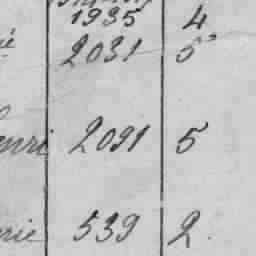 1935 4
é 2031 5
enri 2091 5
nie 539 2.